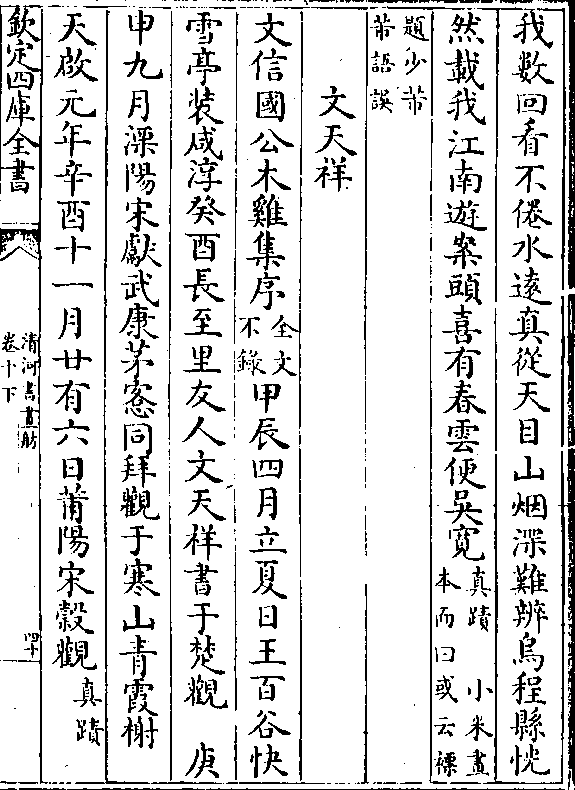 我數回看不倦水遠真從天目山烟深難辨烏程縣恍
然載我江南遊案頭喜有春雲便吳寛真蹟　小米畫本而曰或云標
題少芾芾語誤
文天祥
文信國公木雞集序全文不錄甲辰四月立夏日王百谷快
雪亭裝咸淳癸酉長至里友人文天祥書于楚觀　庚
申九月溧陽宋獻武康茅窓同拜觀于寒山青霞榭
天啟元年辛酉十一月廿有六日莆陽宋縠觀真蹟
欽定四庫全書
清河書畫舫
卷十下
四十